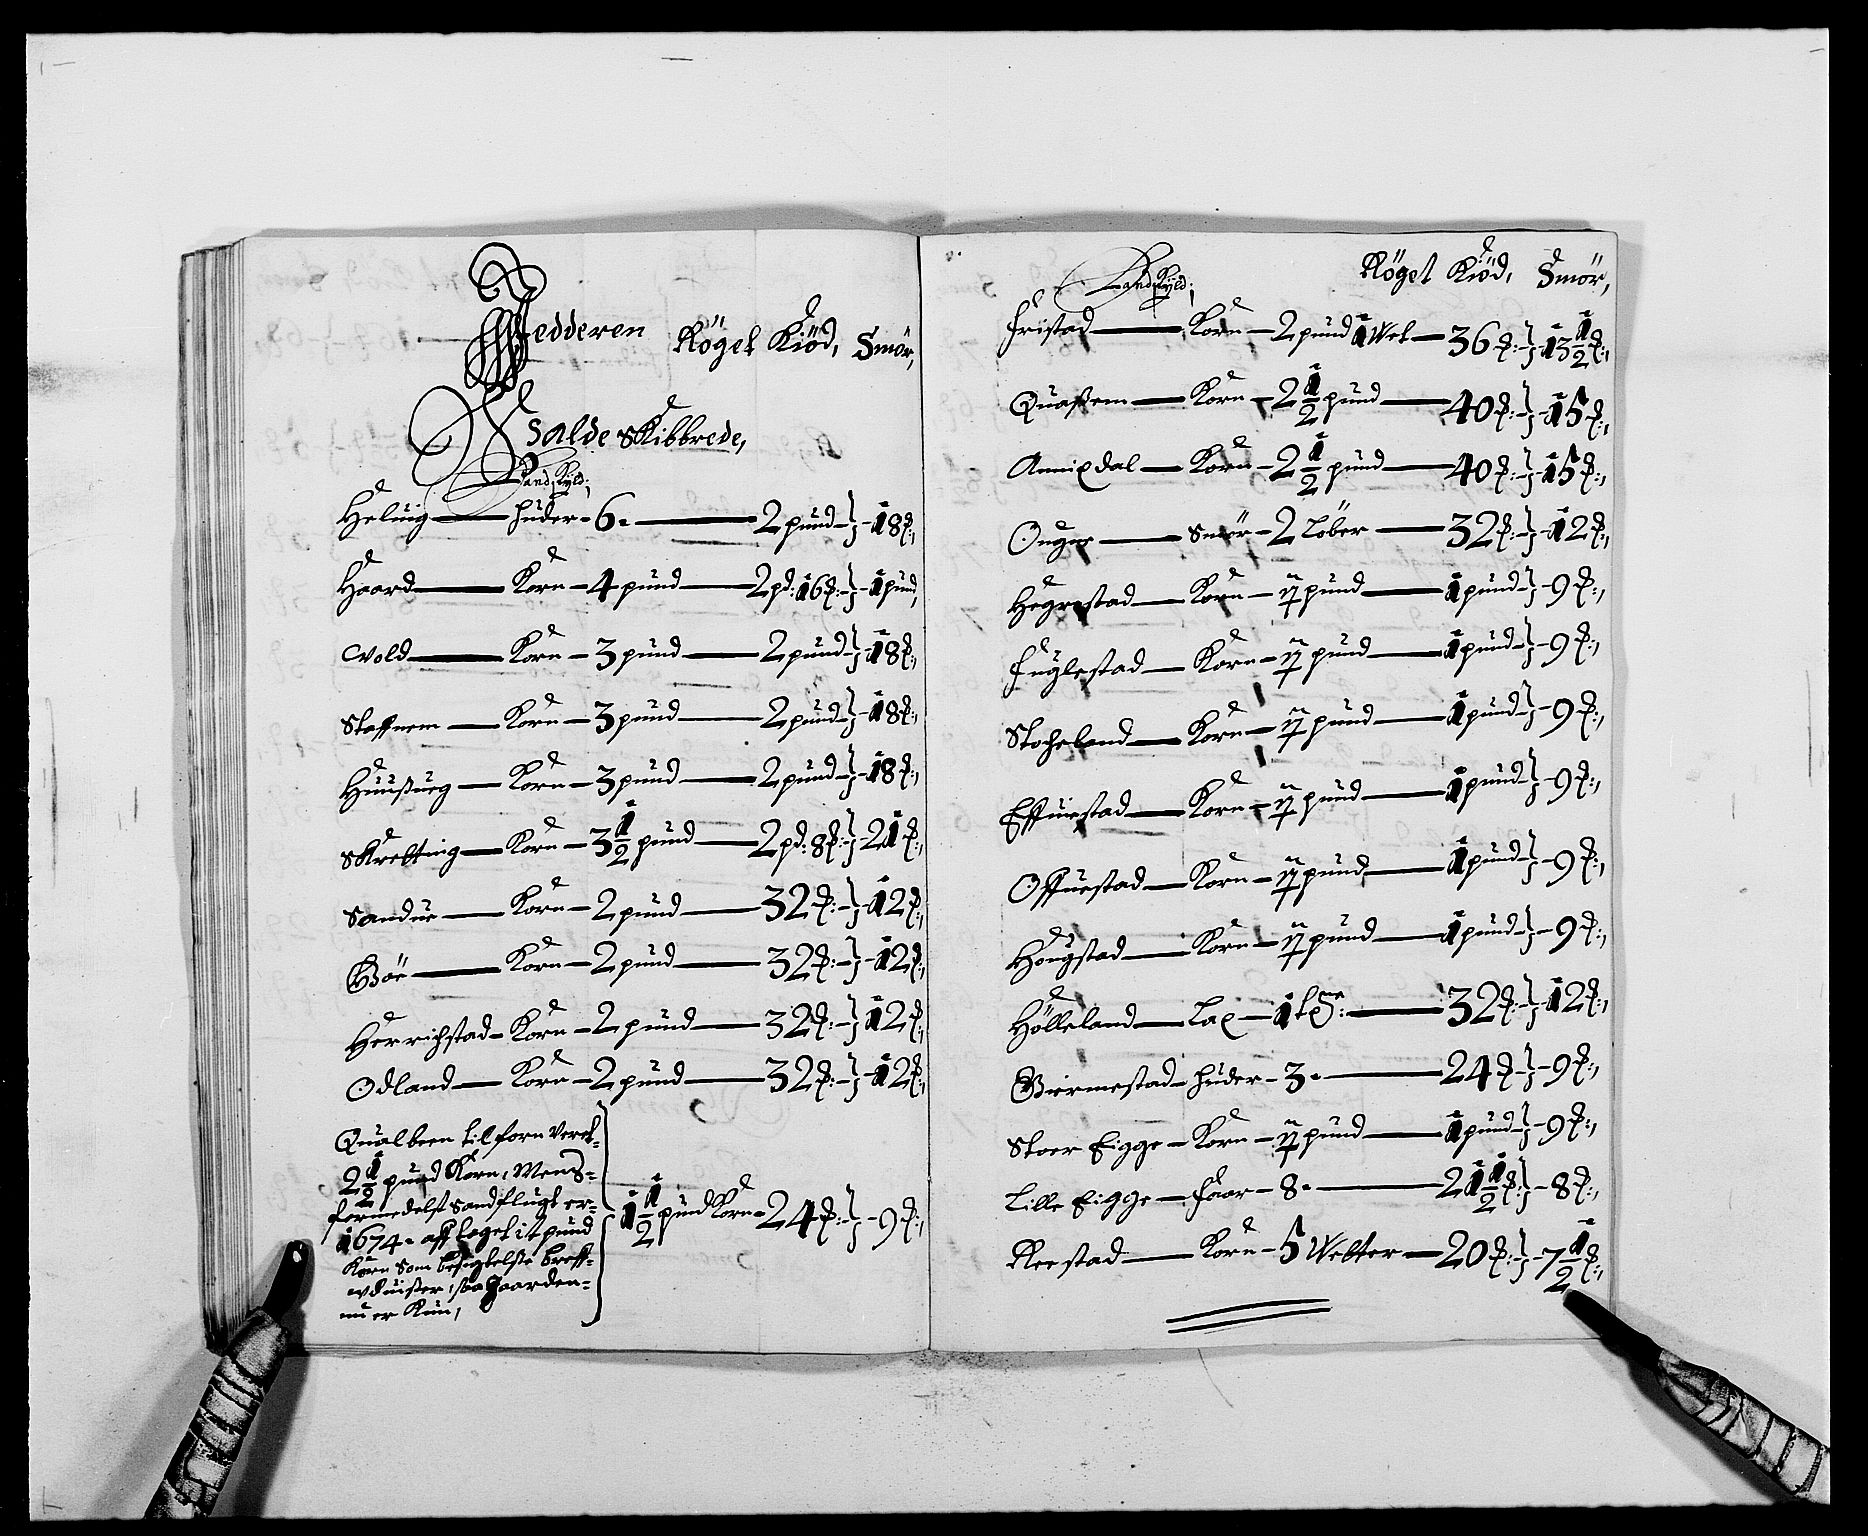 Jedderen Röget Kiöd, Smör,
Hsalde Skibbrede,
Landskyld;
Heluig huder - 6 - 2 pund - 18 ℔:,
Haard Korn - 4 pund 2 pd: 16 ℔: - 1 pund,
Wold Korn - 3 pund 2 pund - 18 ℔:,
Staffnem Korn - 3 pund 2 pund - 18 ℔:,
Huußueg Korn - 3 pund 2 pund - 18 ℔:,
Skretting Korn - 3 1/2 pund 2 pd: 8 ℔: - 21 ℔:,
Sandue Korn - 2 pund 32 ℔: - 12 ℔:,
Böe Korn - 2 pund 32 ℔: - 12 ℔:,
Herrichstad - Korn - 2 pund 32 ℔: - 12 ℔:,
Odland Korn - 2 pund 32 ℔: - 12 ℔:,
Qualbeen tilforn Veret-
2 1/2 pund Korn, Mens-
formedelst Sandflugt er-
1674 - afftaget it pund
Korn Som besigtelße breff-
uduißer, saa Gaarden-
nu er Kun,
1 1/2 pund Korn - 24 ℔: - 9 ℔:,
Landskyld; Röget Kiöd, Smör,
Fristad Korn - 2 pund 1 Wet - 36 ℔: - 13 1/2 ℔:,
Quaßem Korn - 2 1/2 pund 40 ℔: - 15 ℔:,
Annixdal Korn - 2 1/2 pund 40 ℔: - 15 ℔:,
Ougne Smör - 2 Löber 32 ℔: - 12 ℔:,
Hegrestad Korn - pund 1 pund - 9 ℔:,
Fuglestad Korn - pund 1 pund - 9 ℔:,
Stocheland Korn - pund 1 pund - 9 ℔:,
Effuestad Korn - pund 1 pund - 9 ℔:,
Offuestad Korn - pund 1 pund - 9 ℔:,
Hougstad Korn - pund 1 pund - 9 ℔:,
Hölleland Lax - 1 32 ℔: - 12 ℔:,
Biermestad - huder - 3 - 24 ℔ - 9 ℔:,
Stoer Eigge - Korn - pund 1 pund - 9 ℔:,
Lille Eigge - Faar - 8 - 21 1/2 ℔: - 8 ℔:,
Reestad Korn - 5 Wetter - 20 ℔: - 7 1/2 ℔:,